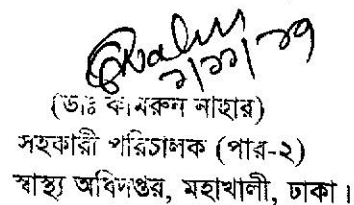 ২/১১/১৭
(ডাঃ কামরুন নাহার)
সহকারী পরিচালক (পার-২)
স্বাস্থ্য অধিদপ্তর, মহাখালী, ঢাকা।